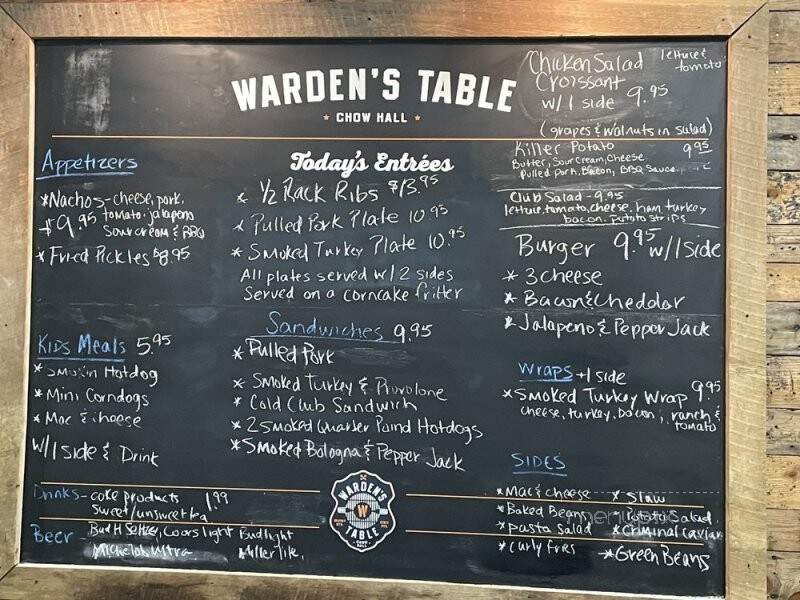 WARDEN'S TABLE
CHOW HALL
Appetizers
*Nachos-cheese, pork,
$9.95 tomato, jalapeno
sour cream & BBQ
*Fried Pickles $8.95
Kids Meals 5.95
*Smokin Hotdog
*Mini Corndogs
*Mac & cheese
w/1 side & Drink
Drinks - coke products 1.99
sweet/unsweet tea
Beer - Bud H Seltzer, Coors light Budlight
Michelob ultra Miller lite
Today's Entrées
* 1/2 Rack Ribs $13.95
* Pulled Pork Plate 10.95
* Smoked Turkey Plate 10.95
All plates served w/ 2 sides
Served on a corncake fritter
Sandwiches 9.95
*Pulled Pork
* Smoked Turkey & Provolone
* Cold Club Sandwich
* 2 Smoked Quarter Pound Hotdogs
*Smoked Bologna & Pepper Jack
WARDEN'S
W
TABLE
Chicken Salad lettuce &
Croissant tomato
w/1 side 9.95
(grapes & walnuts in salad)
Killer Potato 9.95
Butter, Sour Cream, Cheese
Pulled Pork, Bacon, BBQ Sauce
Club Salad - 9.95
lettuce, tomato, cheese, ham, turkey
bacon, potato strips
Burger 9.95 w/1 side
* 3 cheese
* Bacon & Cheddar
* Jalapeno & Pepper Jack
Wraps +1 side
*Smoked Turkey Wrap 9.95
cheese, turkey, bacon, ranch &
tomato
SIDES
*Mac & cheese * Slaw
*Baked Beans *Potato Salad
*pasta salad *Criminal Caviar
*curly fries *Green Beans